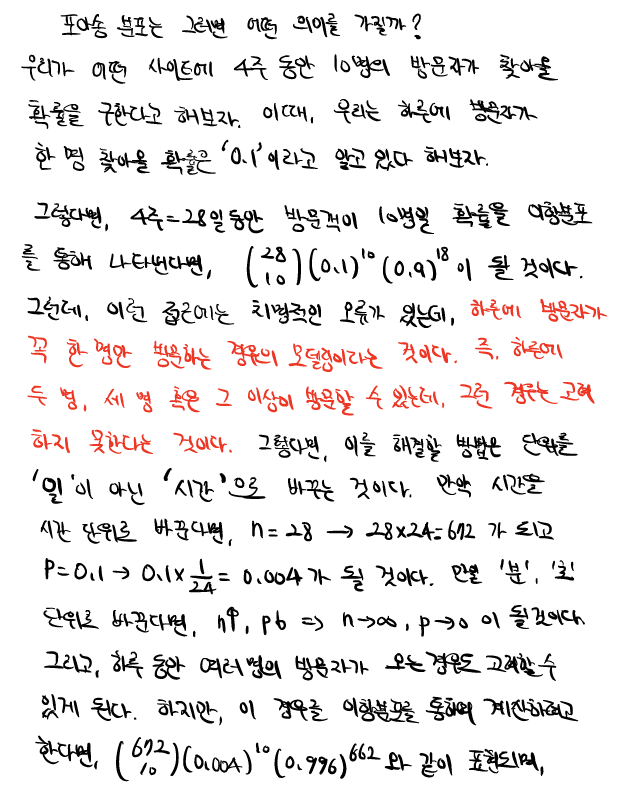 포아송 분포는 그러면 어떤 의미를 가질까?
우리가 어떤 사이트에 4주 동안 10명의 방문자가 찾아올
확률을 구한다고 해보자. 이때, 우리는 하루에 방문자가
한 명 찾아올 확률은 '0.1'이라고 알고 있다 해보자.
그렇다면, 4주=28일 동안 방문객이 10명일 확률을 이항분포
를 통해 나타낸다면, (28 10)(0.1)^10(0.9)^18 이 될 것이다.
그런데, 이런 접근에는 치명적인 오류가 있는데, 하루에 방문자가
꼭 한 명만 방문하는 경우의 모델링이라는 것이다. 즉, 하루에
두 명, 세 명 혹은 그 이상이 방문할 수 있는데, 그런 경우는 고려
하지 못한다는 것이다. 그렇다면, 이를 해결할 방법은 단위를
'일'이 아닌 '시간'으로 바꾸는 것이다. 만약 시간을
시간 단위로 바꾼다면, n=28 → 28×24=672 가 되고
P=0.1 → 0.1×1/24 = 0.004가 될 것이다. 만일 '분', '초'
단위로 바꾼다면, n↑, p↓ => n→∞, p→0 이 될것이다
그리고, 하루 동안 여러명의 방문자가 오는경우도 고려할 수
있게 된다. 하지만, 이 경우를 이항분포를 통하여 계산하려고
한다면, (672 10)(0.004)^10(0.996)^662 와 같이 표현되며,